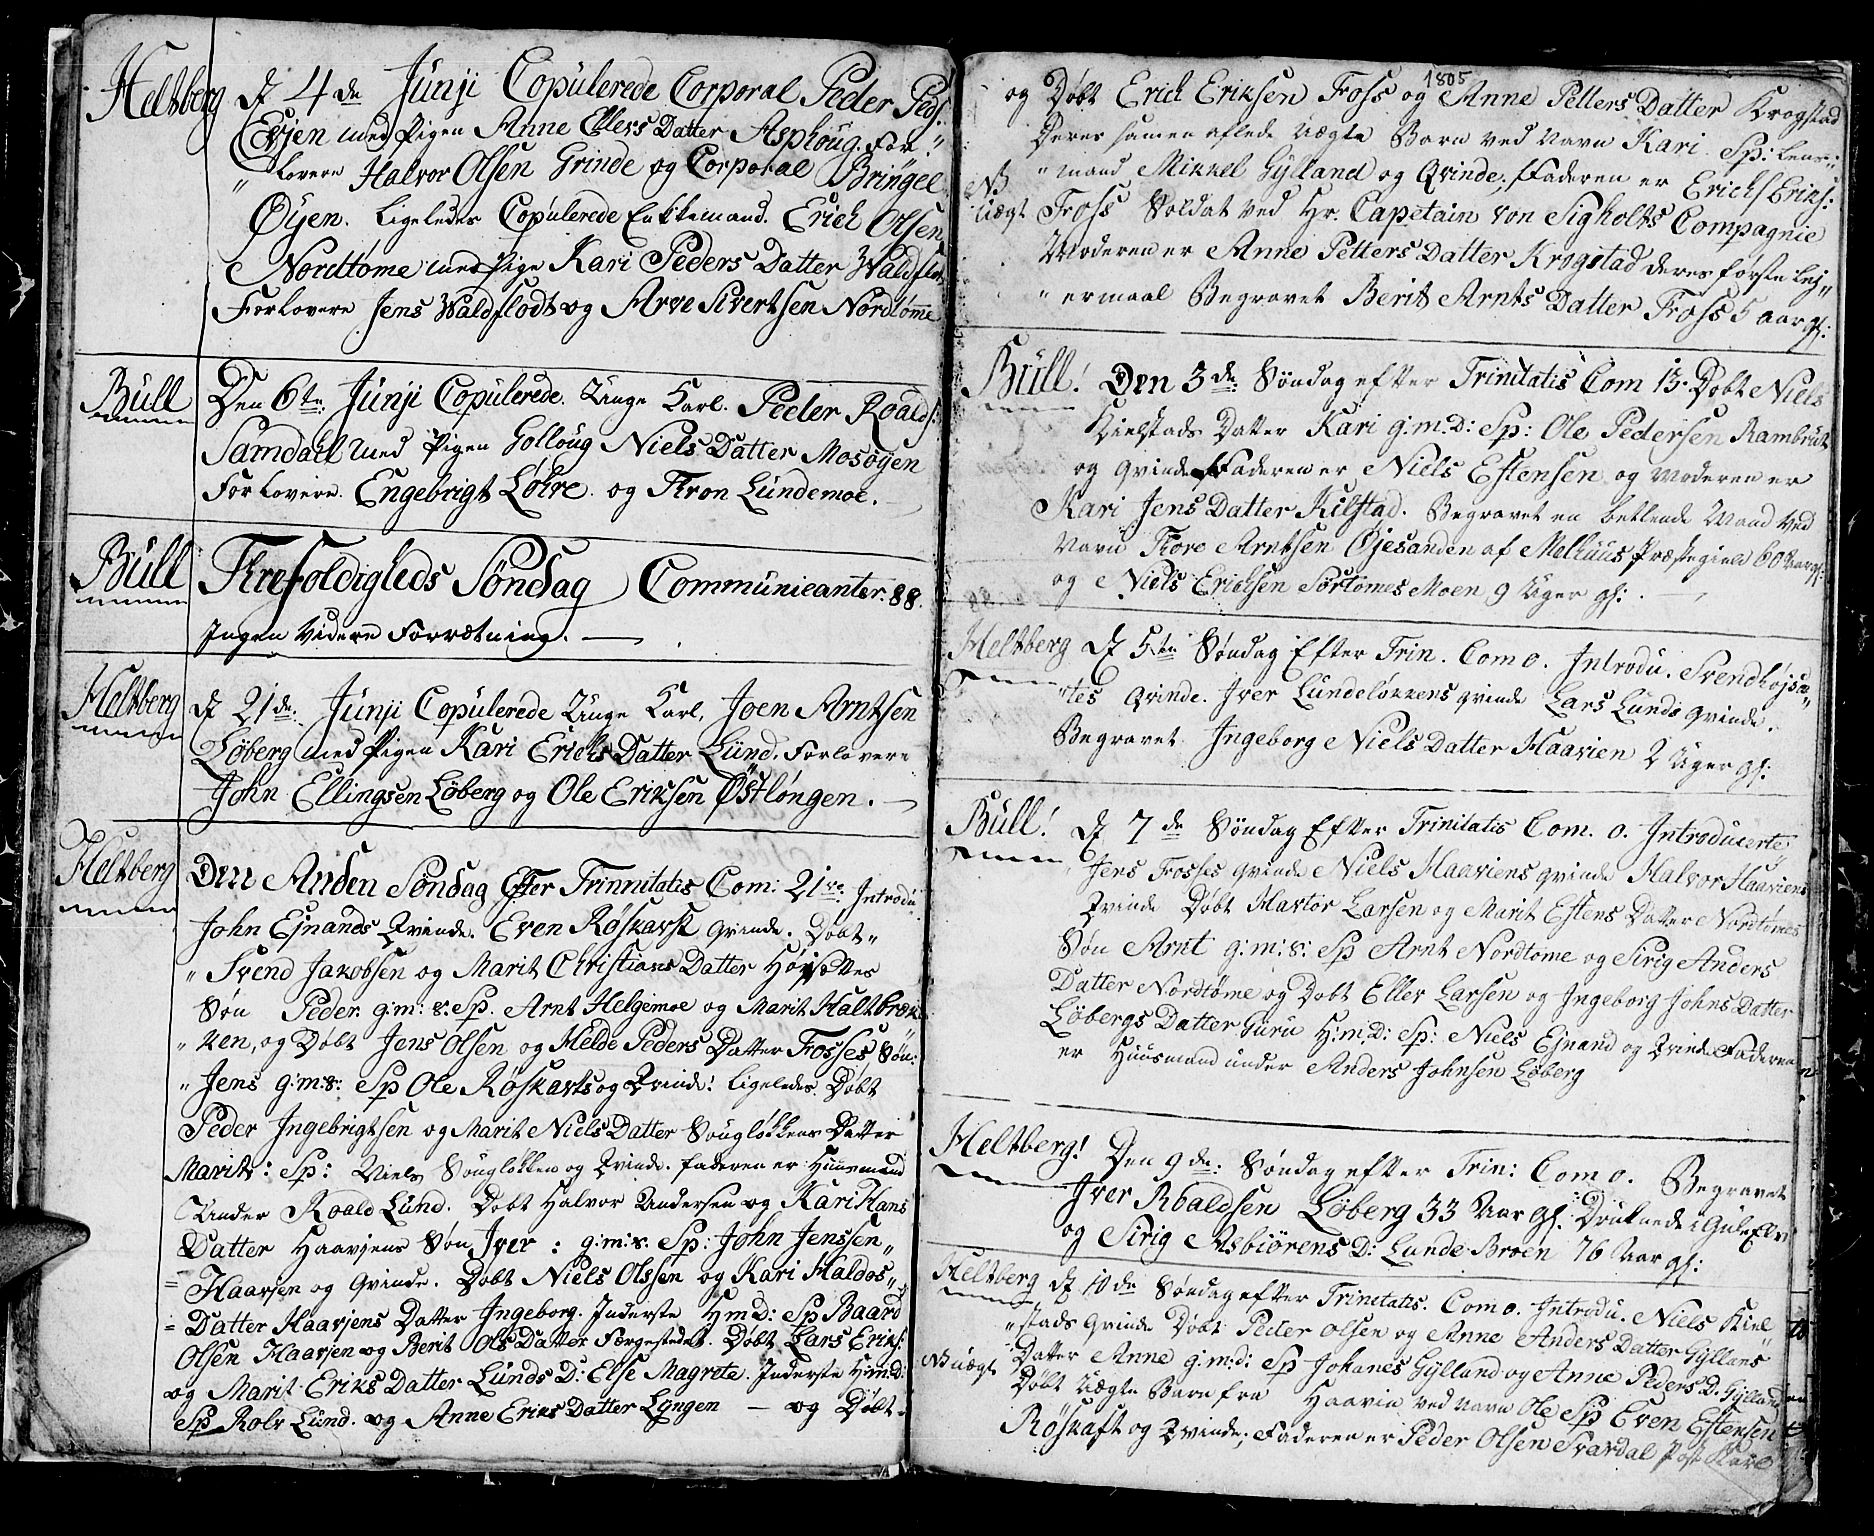 Heltberg d 4de Junji Copulerede Corporal Peder Peds:
Evjen med Pigen Anne Ellers Datter Asphoug. For„
„ lovere Halvor Olsen Grinde og Corporal Bringel
Øyen. Ligeledes Copulerede Enkemand. Erich Olsen
Nordtøme med Pige Kari Peders Datter Waldflot
Forlovere Jens Waldflodt og Arve Sivertsen Nordtømme
Bull Den 6te Junji Copulerede Unge Karl. Peder Roalds:
Samdall med Pigen Golloug Niels Datter Mosøyen
Forlovere. Engebrigt Løhre. og Thron Lundemoe.
Bull Threfoldigheds Søndag Communicanter: 88.
Ingen Videre Forretning.
Heltberg d 21de Junji Copulerede Unge Karl. Joen Arntsen
Løberg med Pigen Kari Erichs Datter Lund. Forlovere
John Ellingsen Løberg og Ole Eriksen Østløngen.
Heltberg Den Anden Søndag Efter Trinnitatis Com: 21 Introdu
John Ejnands Qvinde. Even Røskarft Qvinde. Døbt„
„ Svend Jakobsen og Marit Christians Datter Højsettes
Søn Peder. g:m: s: Sp. Arnt Helgemoe og Marit Haltbræk
„ ken, og Døbt Jens Olsen og Helde Peders Datter Fosses Søn:
„ Jens g:m:s: Sp Ole Røskarfts og Qvinde! Ligeledes Døbt
Peder Ingebrigtsen og Marit Niels Datter Sougløkkens Datter
Marit: Sp: Niels Sougløkken og Qvinde. faderen er Huusmand
Under Roald Lund. Døbt Halvor Andersen og Kari Hans
Datter Haavjens Søn Iver: g:m:s. Sp: John Jenssen„
= Haavjen og Qvinde. Døbt Niels Olssen og Kari Haldos„
= Datter Haavjens Datter Ingeborg. Inderste H:m:D: Sp Baard
Olsen Haavjen og Berit Ols Datter Forgestedet. Døbt Lars Eriks:
og Marit Eriks Datter Lunds D: Else Magrete. Inderste H:m:d:
Sp Rolv Lund. og Anne Eriks Datter Lyngen — og Døbt.
1805
og Døbt Erich Eriksen Foss og Anne Petters Datter Krogstad
Deres samen aflede Uægte Barn ved Navn Kari Sp: Lens„
„ mand Mikkel Gylland og Qvinde. Faderen er Erich Eriks:
NB Uægt Foss Soldat ved Hr. Capetain von Sigholts Compagnie
Moderen er Anne Petters Datter Krogstad deres første Lej„
„ ermaal Begravet Berit Arnts Datter Foss 5 aar gl:
Bull! Den 3de Søndag efter Trinitatis Com 13. Døbt Niels
Kielstads Datter Kari g:m:D: Sp: Ole Pedersen Rambrut
og Qvinde Faderen er Niels Estensen og Moderen er
Kari Jens Datter Kilstad. Begravet en betlende Mand ved
Navn Thore Arntsen Øjesanden af Melhuus Præstegield 60 Aar gl:
og Niels Erichsen Sørtømes Moen 9 Uger gl:
Heltberg d 5te Søndag Efter Trin. Com 0. Introdu. Svend Højsæ„
„tes Qvinde. Iver Lundeløkkens Qvinde Lars Lunds Qvinde.
Begravet Ingeborg Niels Datter Haavien 2 Uger gl:
Bull! d 7de Søndag Efter Trinitatis Com. 0. Introducerte
„ Jens Fosses Qvinde Niels Haaviens Qvinde Halvor Haaviens
Qvinde Døbt Havtor Larsen og Marit Estens Datter Nordtømes
Søn Arnt g:m:s: Sp Arnt Nordtøme og Sirig Anders
Datter Nordtøme og Døbt Eller Larsen og Ingeborg Johns Datter
Løbergs Datter Guru H:m:D: Sp: Niels Ejnand og Qvinde Faderen
er Huusmand under Anders Johnsen Løberg
Heltberg! Den 9de: Søndag efter Trin: Com 0. Begravet
Iver Roaldsen Løberg 33 Aar gl: Druknede i Gule Elv
og Sirig Asbiørens D: Lunde Broen 76 Aar gl:
Heltberg d 10de Søndag efter Trinitatis. Com 0. Introdu. Niels Kiel
„stads Qvinde Døbt Peder Olsen og Anne Anders Datter Gyllans
Datter Anne g:m:d: Sp Johanes Gylland og Anne Peders D. Gylland
NB uægt Døbt Uægte Barn fra Haavin ved Navn Ole Sp Even Estensen
Røskaft og Qvinde; Faderen er Peder Olsen Svardal Post Karl